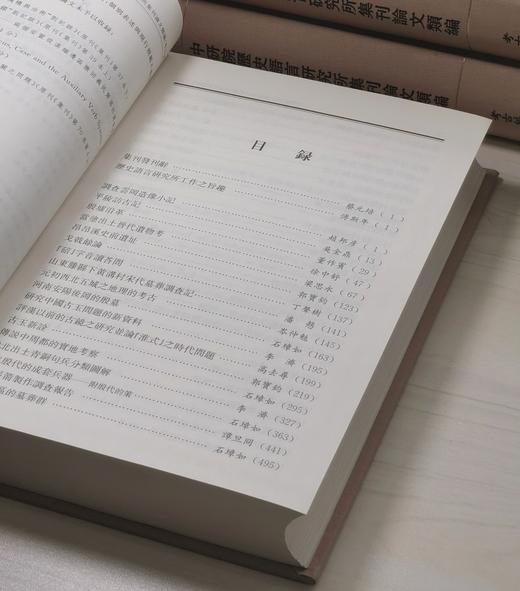 Case and the Auxiliary Verb System
研究所集刊論文類編
考古
中研院歷史語言研究所集刊論文類編
考古編
目 錄
集刊發刊辭 蔡元培（1）
歷史語言研究所工作之旨趣 傅斯年（1）
調查雲岡造像小記 趙邦彥（1）
平陵訪古記 吳金鼎（13）
殷墟沿革 董作賓（29）
當塗出土晉代遺物考 徐中舒（47）
昂昂溪史前遺址 梁思永（67）
戈戟餘論 郭寶鈞（123）
字音讀答問 丁聲樹（137）
山東滕縣下黃溝村宋代墓葬調查記 潘慤（141）
元初西北五城之地理的考古 岑仲勉（145）
河南安陽後岡的殷墓 石璋如（163）
研究中國古玉問題的新資料 李 濟（195）
評漢以前的古鏡之研究並論「淮式」之時代問題 高去尋（199）
古玉新詮 郭寶鈞（219）
傳說中周都的實地考察 石璋如（295）
北出土青銅句兵分類圖解 李 濟（327）
殷代的成套兵器——附殷代的策 石璋如（363）
箭製作調查報告 譚旦冏（441）
區的墓葬群 石璋如（495）